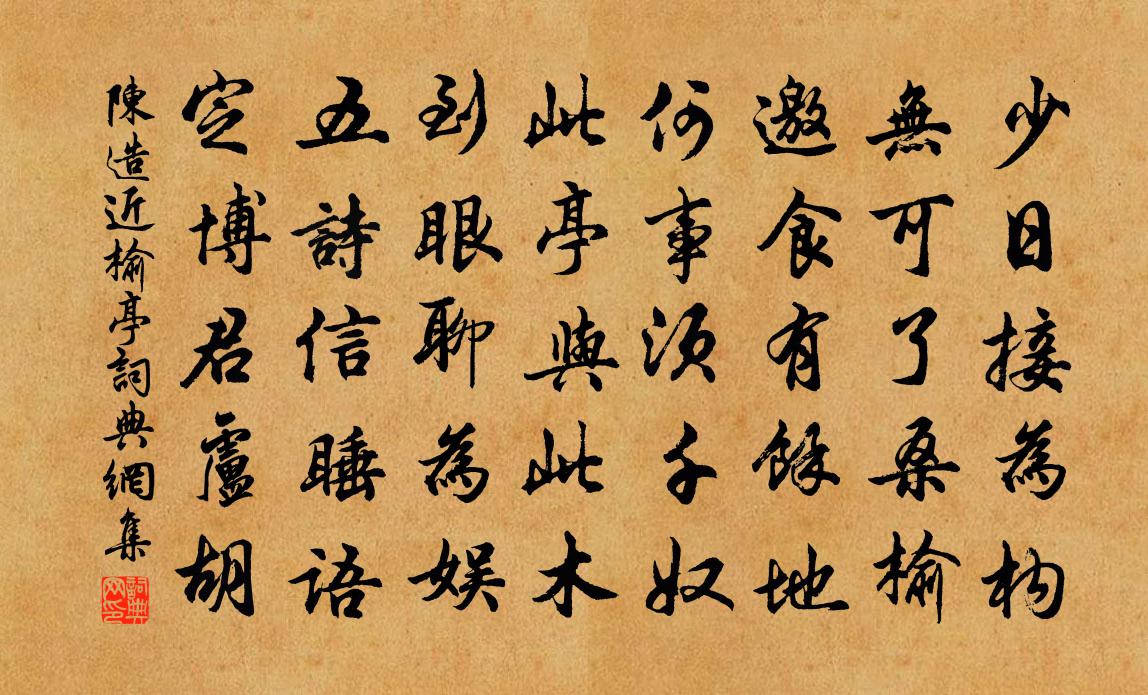 少日接為构
無可了桑榆
邀食有餘地
何事須千奴
此亭與此木
到眼聊為娱
五詩信睡語
定博君盧胡
陳造近榆亭詞典網集
詞典网印